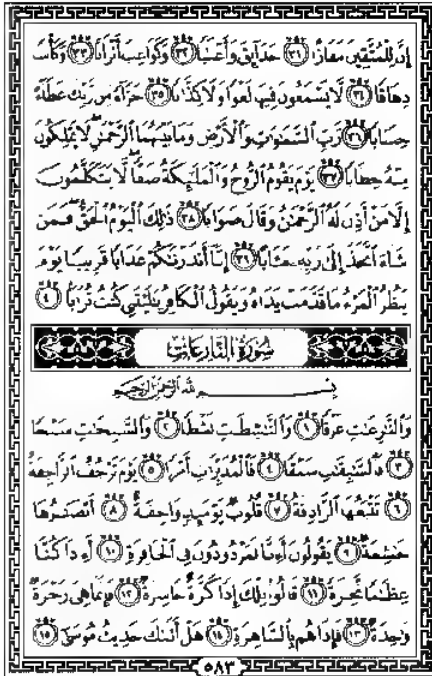 إِنَّ لِلْمُتَّقِينَ مَفَازًا ٣١ حَدَآئِقَ وَأَعْنَٰبًا ٣٢ وَكَوَاعِبَ أَتْرَابًا ٣٣ وَكَأْسًا
دِهَاقًا ٣٤ لَّا يَسْمَعُونَ فِيهَا لَغْوًا وَلَا كِذَّٰبًا ٣٥ جَزَآءً مِّن رَّبِّكَ عَطَآءً
حِسَابًا ٣٦ رَّبِّ ٱلسَّمَٰوَٰتِ وَٱلْأَرْضِ وَمَا بَيْنَهُمَا ٱلرَّحْمَٰنِ لَا يَمْلِكُونَ
مِنْهُ خِطَابًا ٣٧ يَوْمَ يَقُومُ ٱلرُّوحُ وَٱلْمَلَٰٓئِكَةُ صَفًّا لَّا يَتَكَلَّمُونَ
إِلَّا مَنْ أَذِنَ لَهُ ٱلرَّحْمَٰنُ وَقَالَ صَوَابًا ٣٨ ذَٰلِكَ ٱلْيَوْمُ ٱلْحَقُّ فَمَن
شَآءَ ٱتَّخَذَ إِلَىٰ رَبِّهِۦ مَـَٔابًا ٣٩ إِنَّآ أَنذَرْنَٰكُمْ عَذَابًا قَرِيبًا يَوْمَ
يَنظُرُ ٱلْمَرْءُ مَا قَدَّمَتْ يَدَاهُ وَيَقُولُ ٱلْكَافِرُ يَٰلَيْتَنِى كُنتُ تُرَٰبًۢا ٤٠
سُورَةُ النَّازِعَاتِ
بِسْمِ ٱللَّهِ ٱلرَّحْمَٰنِ ٱلرَّحِيمِ
وَٱلنَّٰزِعَٰتِ غَرْقًا ١ وَٱلنَّٰشِطَٰتِ نَشْطًا ٢ وَٱلسَّٰبِحَٰتِ سَبْحًا
٣ فَٱلسَّٰبِقَٰتِ سَبْقًا ٤ فَٱلْمُدَبِّرَٰتِ أَمْرًا ٥ يَوْمَ تَرْجُفُ ٱلرَّاجِفَةُ
٦ تَتْبَعُهَا ٱلرَّادِفَةُ ٧ قُلُوبٌ يَوْمَئِذٍ وَاجِفَةٌ ٨ أَبْصَٰرُهَا
خَٰشِعَةٌ ٩ يَقُولُونَ أَءِنَّا لَمَرْدُودُونَ فِى ٱلْحَافِرَةِ ١٠ أَءِذَا كُنَّا
عِظَٰمًا نَّخِرَةً ١١ قَالُوا۟ تِلْكَ إِذًا كَرَّةٌ خَاسِرَةٌ ١٢ فَإِنَّمَا هِىَ زَجْرَةٌ
وَٰحِدَةٌ ١٣ فَإِذَا هُم بِٱلسَّاهِرَةِ ١٤ هَلْ أَتَىٰكَ حَدِيثُ مُوسَىٰٓ ١٥
٥٨٣